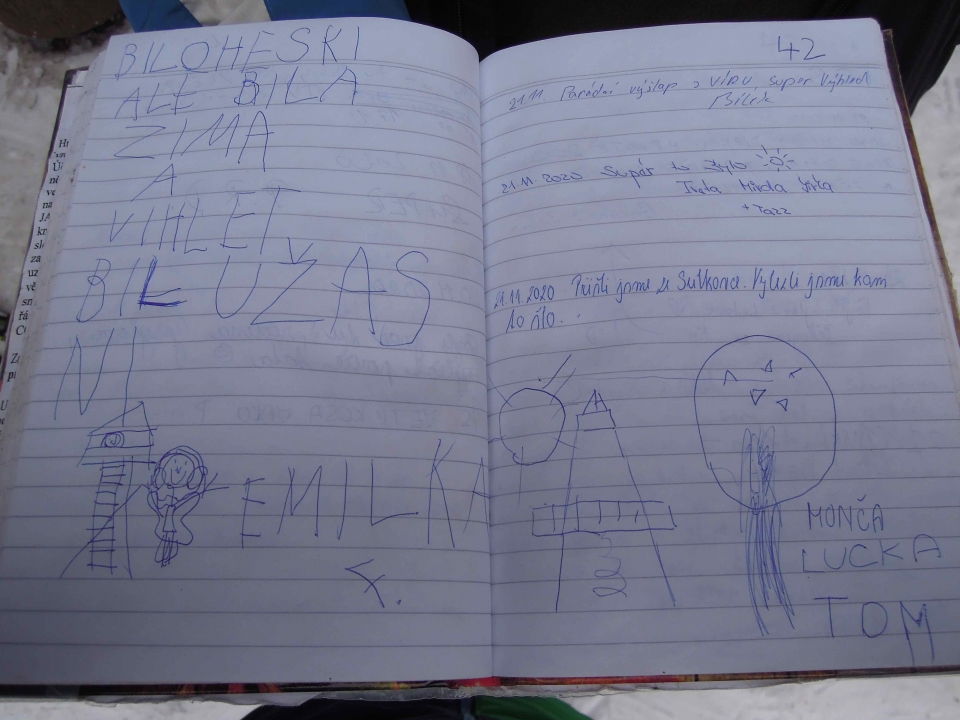 BILOHESKI
ALE BILA
ZIMA
A
VIHLET
BIL UŽAS
NI
EMILKA
42
21.11 Parádní výšlap z VÍRU super výhled
Bílek
21.11 2020 Supár to bylo
Iveta Mirda Jirka
+ Tazz
21.11 2020 Přišli jsme ze Sulkovce. Vylezli jsme kam
to šlo...
MONČA
LUCKA
TOM